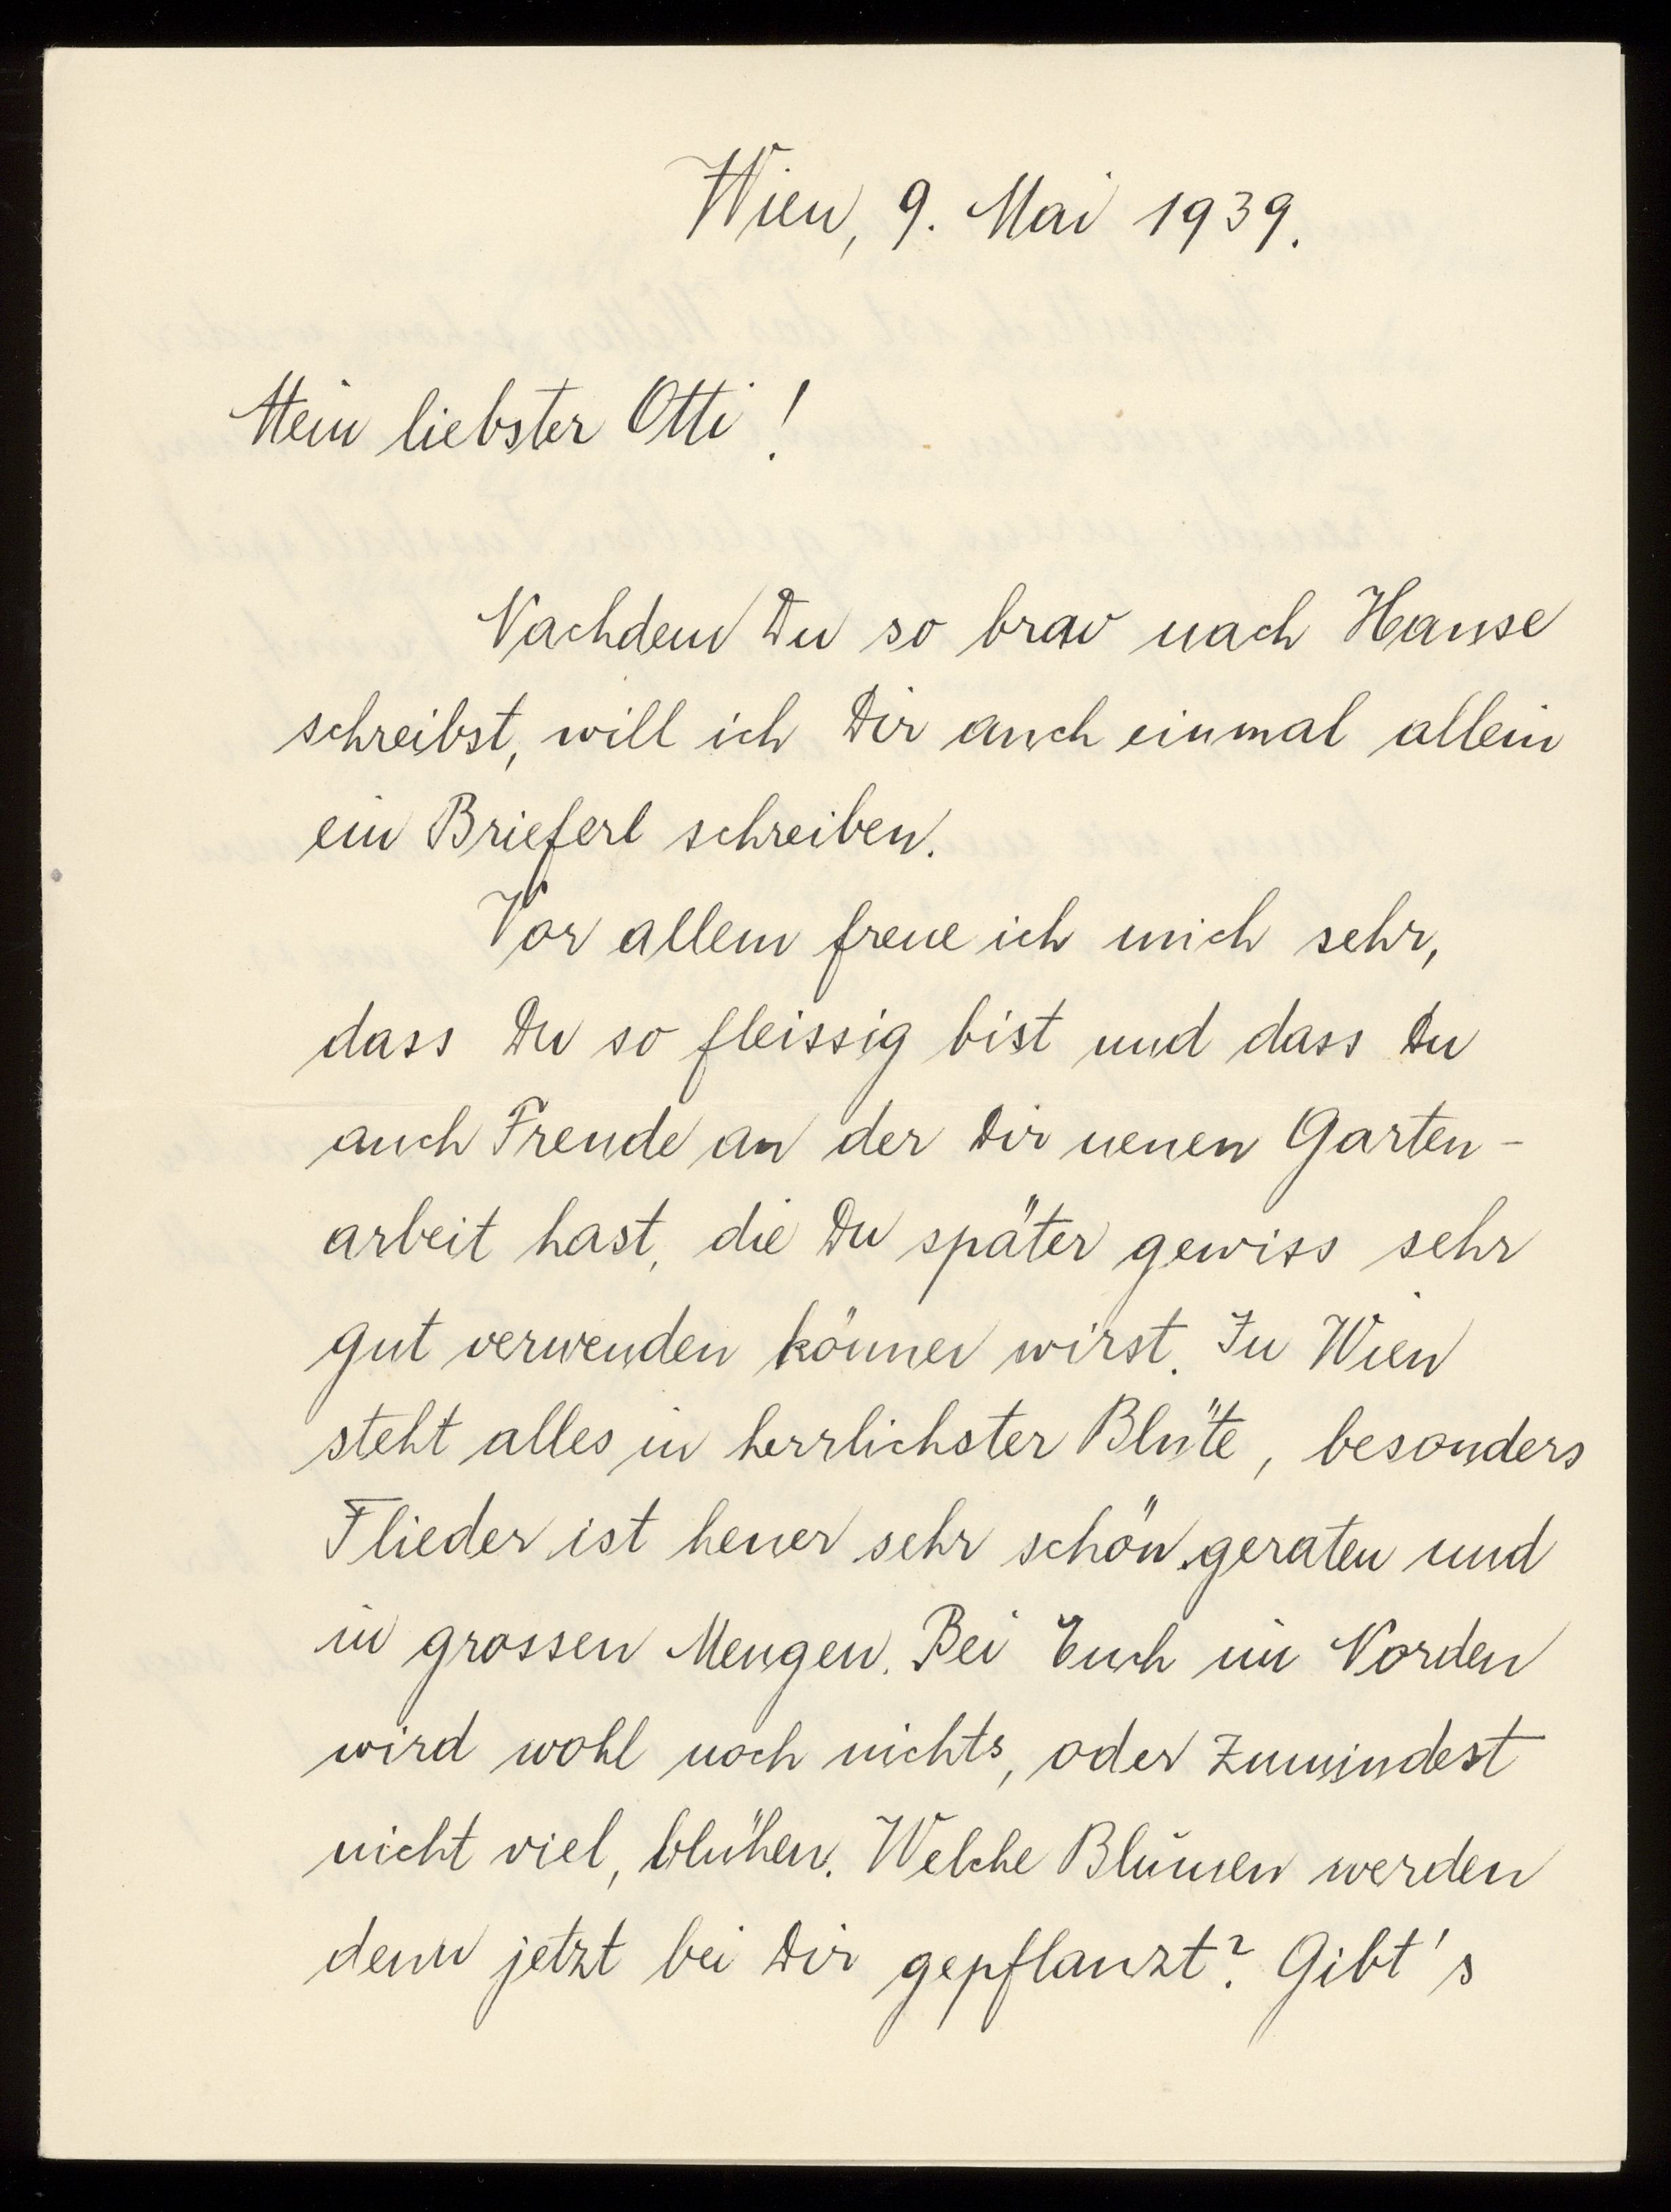 Wien, 9. Mai 1939.
Mein liebster Otti!
Nachdem Du so brav nach Hause
schreibst, will ich Dir auch einmal allein
ein Brieferl schreiben.
Vor allem freue ich mich sehr,
dass Du so fleissig bist und dass Du
auch Freude an der Dir neuen Garten-
arbeit hast, die Du später gewiss sehr
gut verwenden können wirst. In Wien
steht alles in herrlichster Blüte, besonders
Flieder ist heuer sehr schön geraten und
in grossen Mengen. Bei Euch im Norden
wird wohl noch nichts, oder zumindest
nicht viel, blühen. Welche Blumen werden
denn jetzt bei Dir gepflanzt? Gibt's